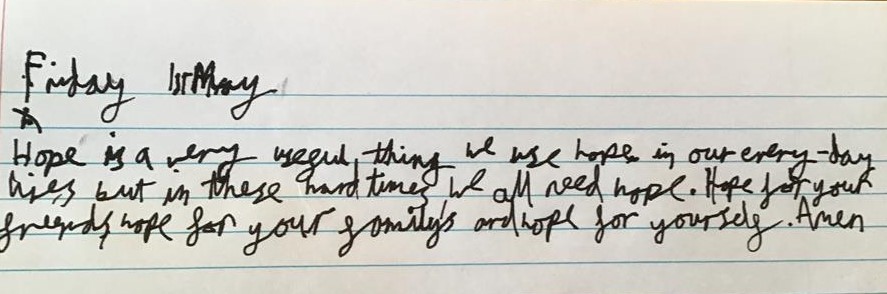 Friday 1st May
Hope is a very useful, thing we use hope in our every-day
lives but in these hard times we all need hope. Hope for your
friends, hope for your family's and hope for yourself. Amen